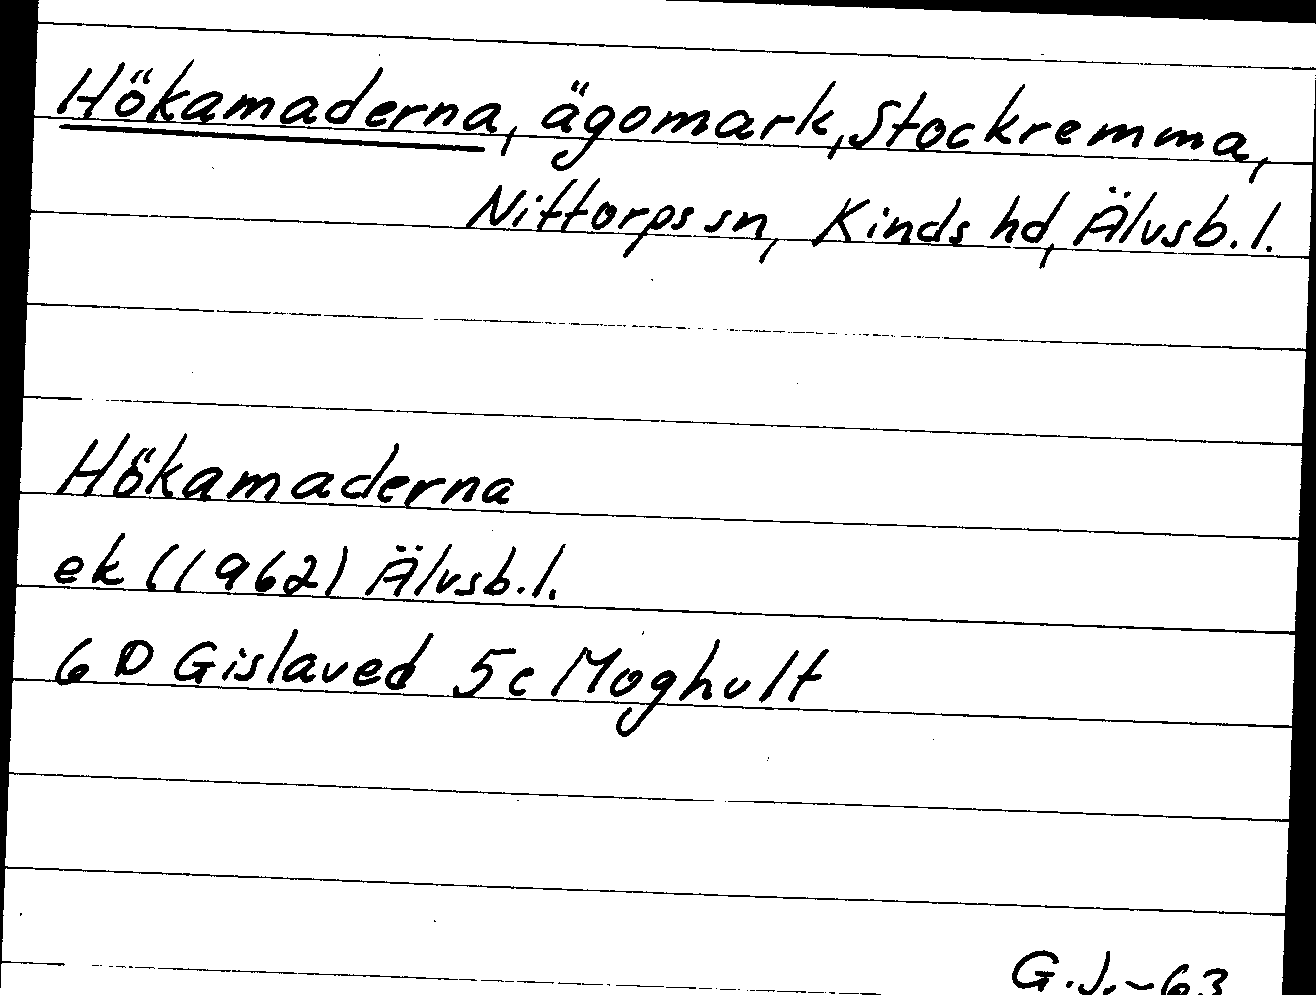 Hökamaderna, ägomark, Stockremma,
Nittorps sn, Kinds hd, Älvsb. l.
Hökamaderna
ek (1962) Älvsb. l.
6 D Gislaved 5c Moghult
G. J. -63